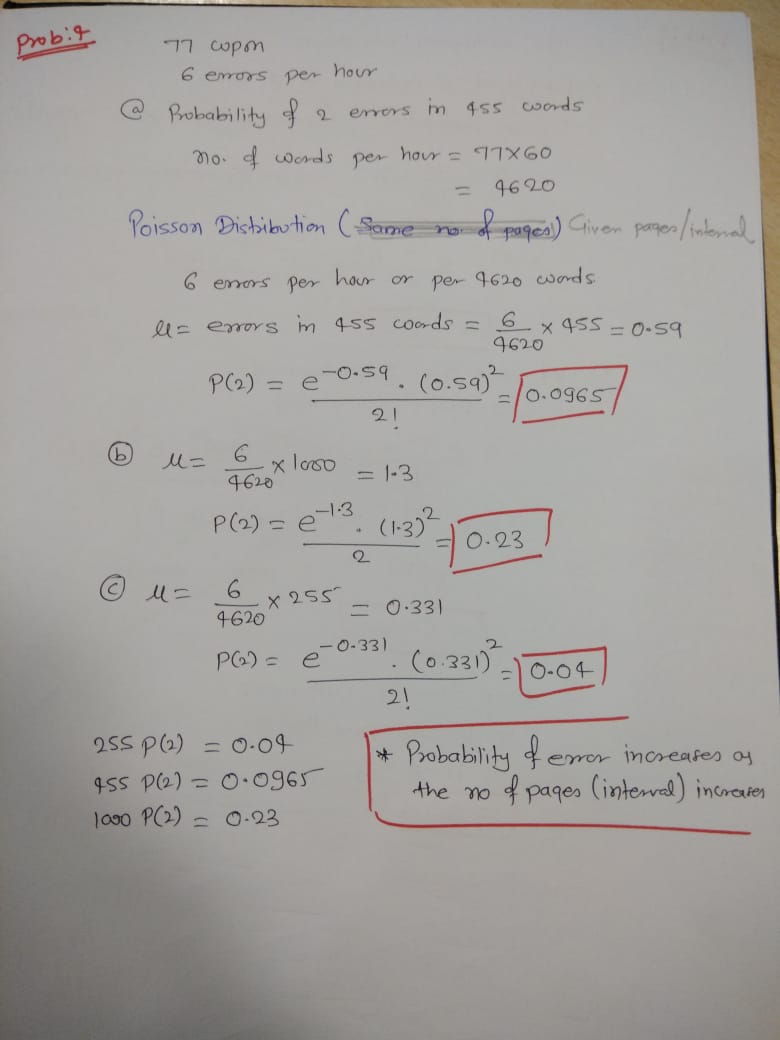 Prob: 4
77 wpm
6 errors per hour
(a) Probability of 2 errors in 455 words
no. of words per hour = 77x60
= 4620
Poisson Distribution (Same no. of pages) Given pages/interval
6 errors per hour or per 4620 words.
μ = errors in 455 words = 6/4620 x 455 = 0.59
P(2) = e^-0.59 . (0.59)^2 / 2! = 0.0965
(b) μ = 6/4620 x 1000 = 1.3
P(2) = e^-1.3 . (1.3)^2 / 2 = 0.23
(c) μ = 6/4620 x 255 = 0.331
P(2) = e^-0.331 . (0.331)^2 / 2! = 0.04
255 P(2) = 0.04
455 P(2) = 0.0965
1000 P(2) = 0.23
* Probability of error increases as
the no of pages (interval) increases